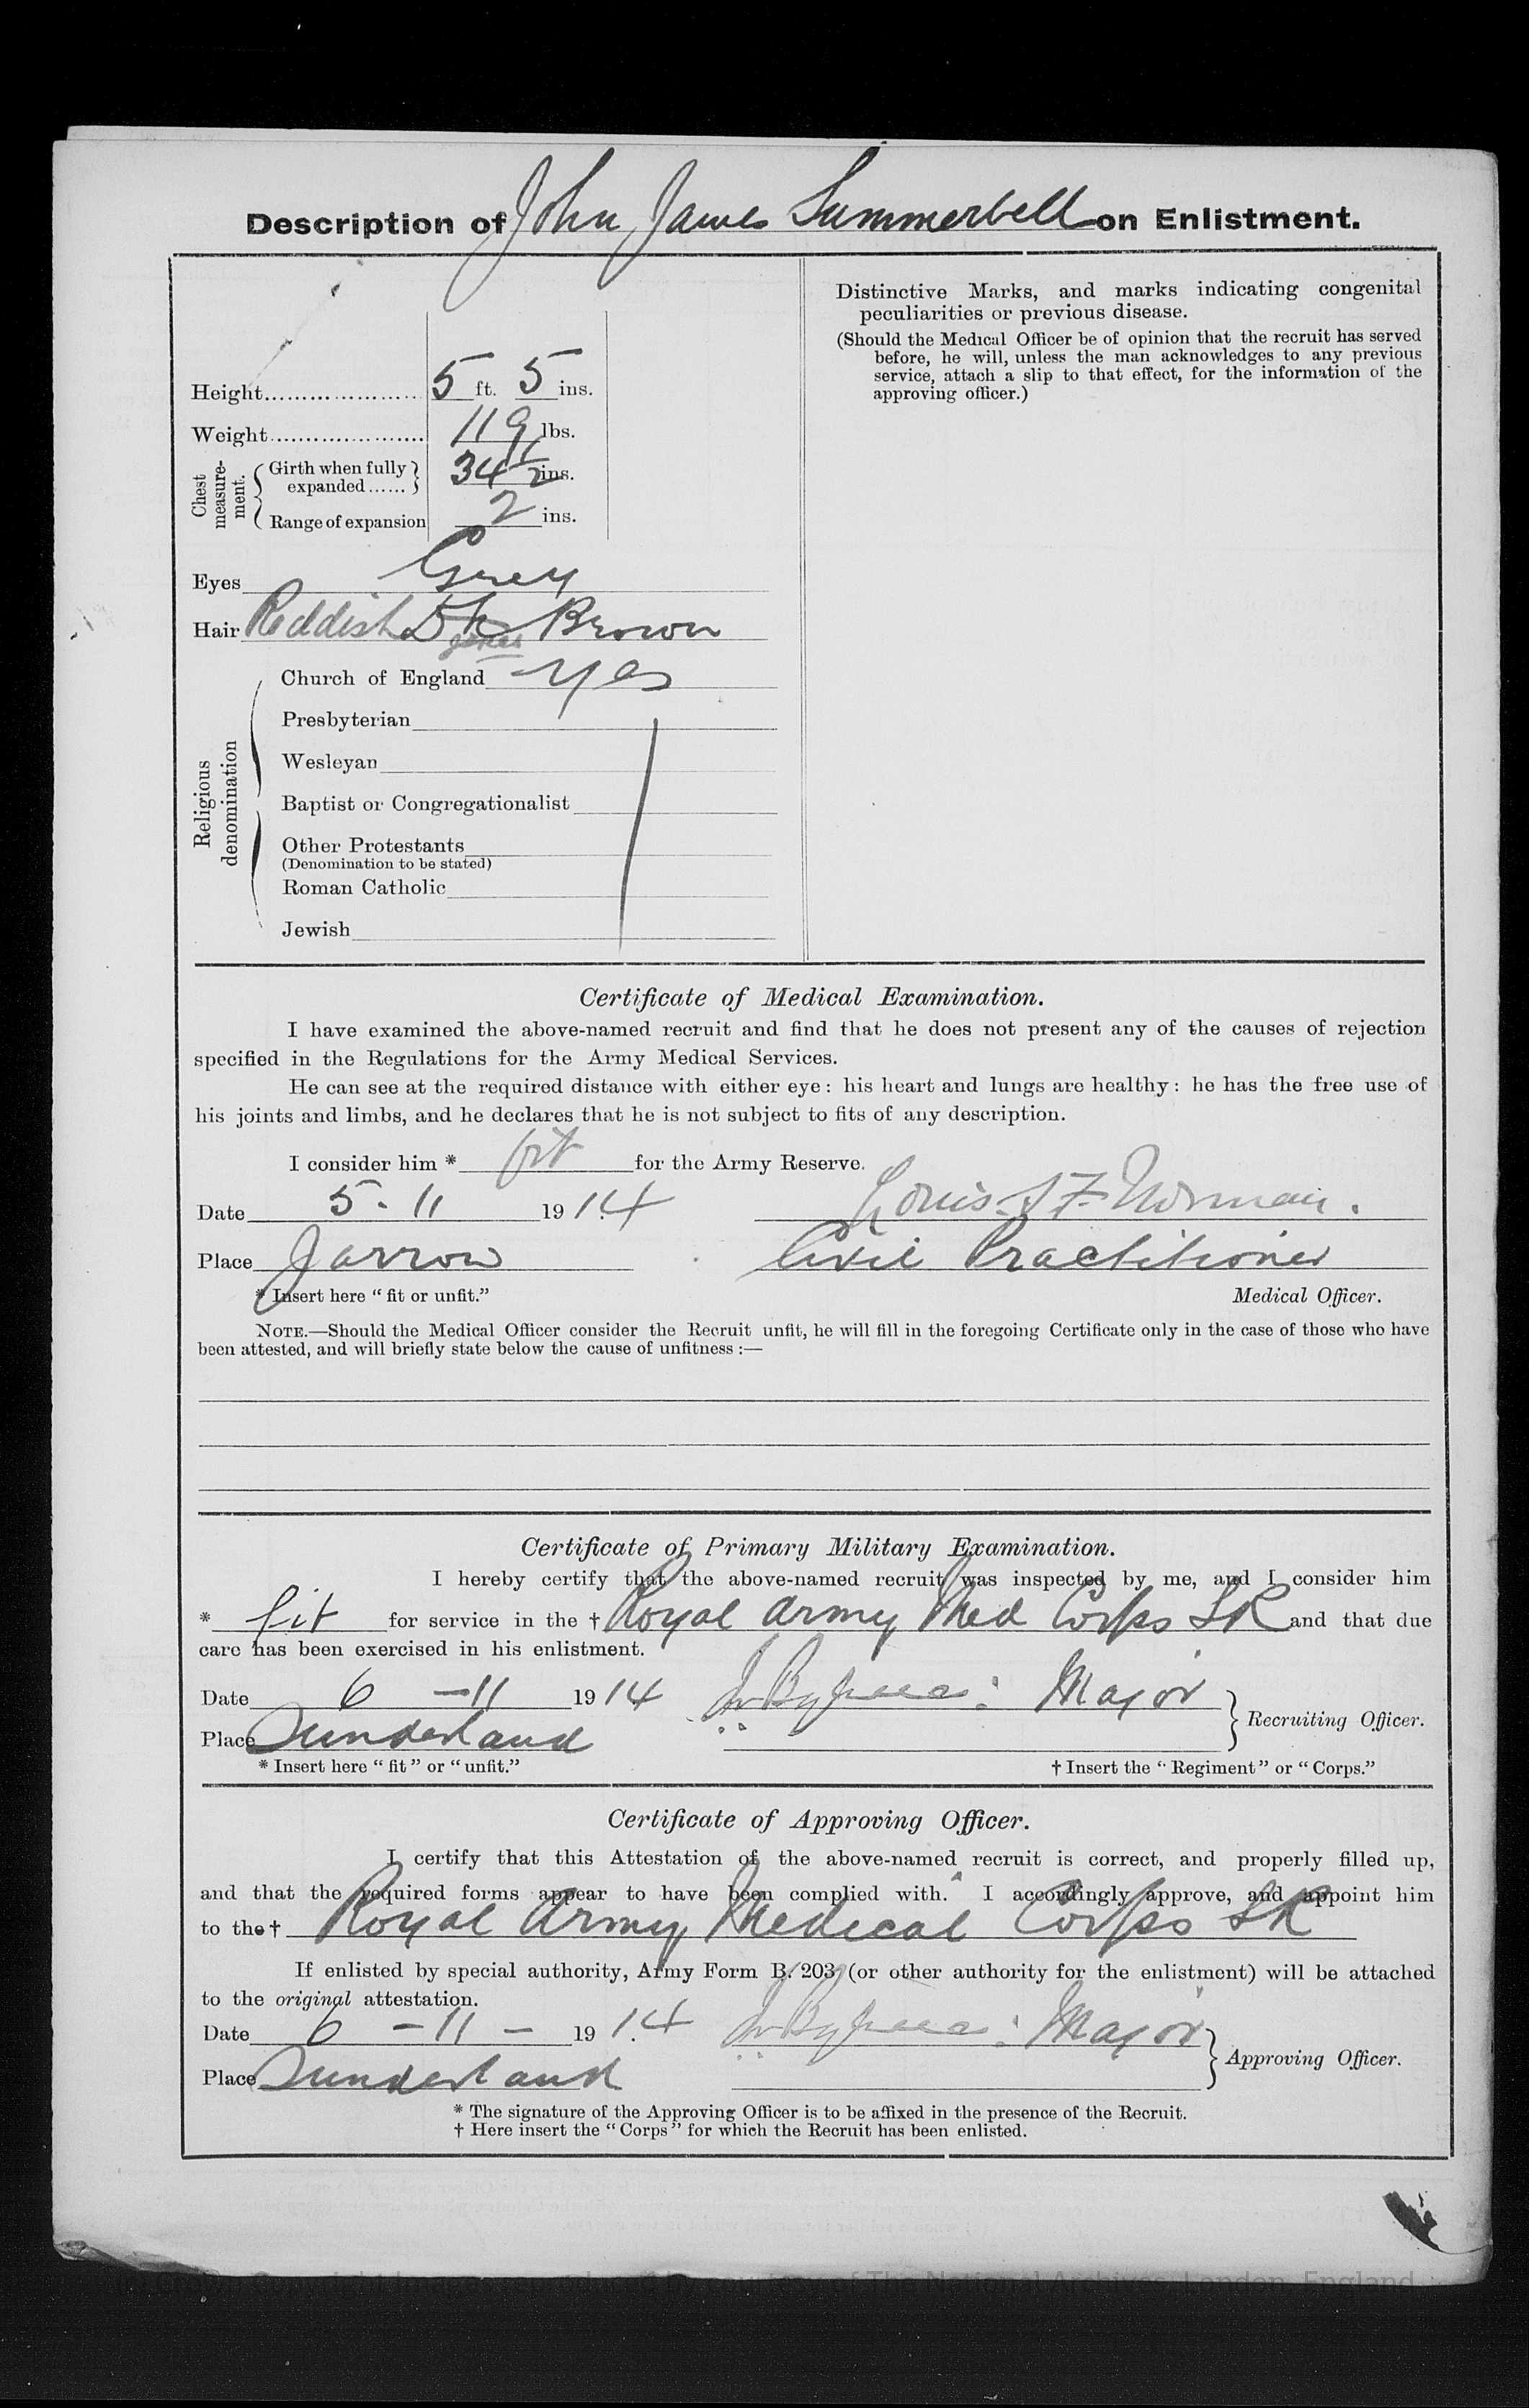 Description of John James Summerbell on Enlistment.
Height..................... 5 ft. 5 ins.
Weight..................... 119 lbs.
Chest measure-ment.
Girth when fully expanded...... 34 1/2 ins.
Range of expansion 2 ins.
Eyes Grey
Hair Reddish Dk Brown
Religious denomination
Church of England Yes
Presbyterian
Wesleyan
Baptist or Congregationalist
Other Protestants
(Denomination to be stated)
Roman Catholic
Jewish
Distinctive Marks, and marks indicating congenital
peculiarities or previous disease.
(Should the Medical Officer be of opinion that the recruit has served
before, he will, unless the man acknowledges to any previous
service, attach a slip to that effect, for the information of the
approving officer.)
Certificate of Medical Examination.
I have examined the above-named recruit and find that he does not present any of the causes of rejection
specified in the Regulations for the Army Medical Services.
He can see at the required distance with either eye: his heart and lungs are healthy: he has the free use of
his joints and limbs, and he declares that he is not subject to fits of any description.
I consider him * fit for the Army Reserve.
Date 5 - 11 1914 Louis F Norman.
Place Jarrow Civil Practitioner
* Insert here "fit or unfit." Medical Officer.
NOTE.—Should the Medical Officer consider the Recruit unfit, he will fill in the foregoing Certificate only in the case of those who have
been attested, and will briefly state below the cause of unfitness :—
Certificate of Primary Military Examination.
I hereby certify that the above-named recruit was inspected by me, and I consider him
* fit for service in the † Royal Army Med Corps SR and that due
care has been exercised in his enlistment.
Date 6 - 11 1914 Major
Recruiting Officer.
Place Sunderland
* Insert here "fit" or "unfit." † Insert the "Regiment" or "Corps."
Certificate of Approving Officer.
I certify that this Attestation of the above-named recruit is correct, and properly filled up,
and that the required forms appear to have been complied with. I accordingly approve, and appoint him
to the † Royal Army Medical Corps SR
If enlisted by special authority, Army Form B. 203 (or other authority for the enlistment) will be attached
to the original attestation.
Date 6 - 11 - 1914 Major
Approving Officer.
Place Sunderland
* The signature of the Approving Officer is to be affixed in the presence of the Recruit.
† Here insert the "Corps" for which the Recruit has been enlisted.